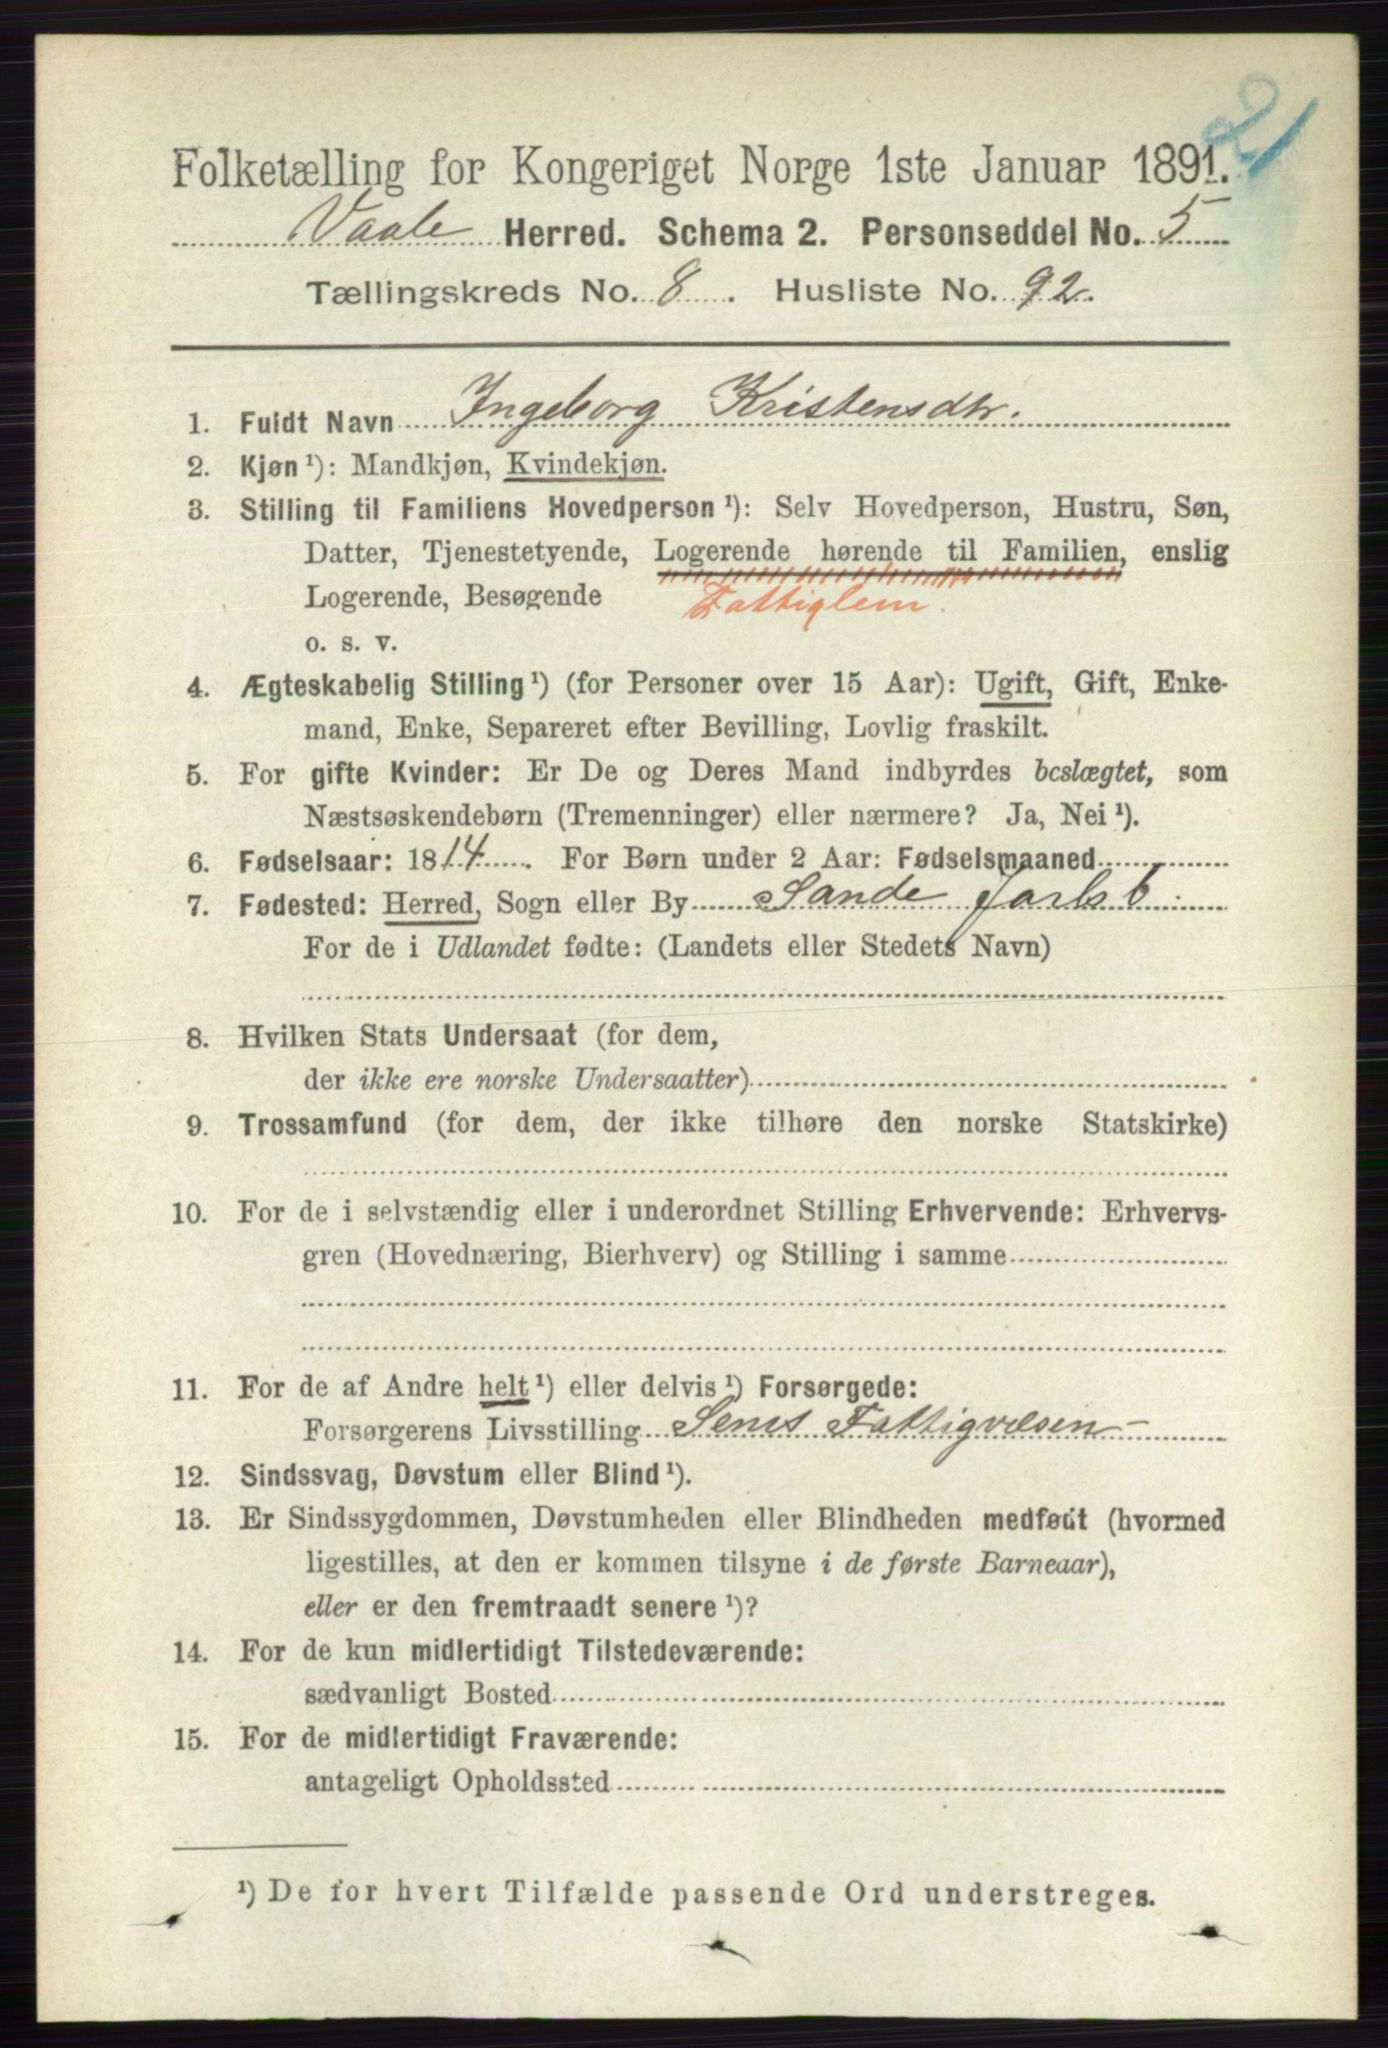 21
Folketælling for Kongeriget Norge 1ste Januar 1891.
Vaale Herred. Schema 2. Personseddel No. 5
Tællingskreds No. 8. Husliste No. 92.
1. Fuldt Navn Ingeborg Kristensdtr.
2. Kjøn ¹): Mandkjøn, Kvindekjøn.
3. Stilling til Familiens Hovedperson ¹): Selv Hovedperson, Hustru, Søn,
Datter, Tjenestetyende, Logerende hørende til Familien, enslig
Logerende, Besøgende Fattiglem.
o. s. v.
4. Ægteskabelig Stilling ¹) (for Personer over 15 Aar): Ugift, Gift, Enke-
mand, Enke, Separeret efter Bevilling, Lovlig fraskilt.
5. For gifte Kvinder: Er De og Deres Mand indbyrdes beslægtet, som
Næstsøskendebørn (Tremenninger) eller nærmere? Ja, Nei ¹).
6. Fødselsaar: 1814. For Børn under 2 Aar: Fødselsmaaned
7. Fødested: Herred, Sogn eller By Sande Jarlsb.
For de i Udlandet fødte: (Landets eller Stedets Navn)
8. Hvilken Stats Undersaat (for dem,
der ikke ere norske Undersaatter)
9. Trossamfund (for dem, der ikke tilhøre den norske Statskirke)
10. For de i selvstændig eller i underordnet Stilling Erhvervende: Erhvervs-
gren (Hovednæring, Bierhverv) og Stilling i samme
11. For de af Andre helt ¹) eller delvis ¹) Forsørgede:
Forsørgerens Livsstilling Sems Fattigvæsen
12. Sindssvag, Døvstum eller Blind ¹).
13. Er Sindssygdommen, Døvstumheden eller Blindheden medfødt (hvormed
ligestilles, at den er kommen tilsyne i de første Barneaar),
eller er den fremtraadt senere ¹)?
14. For de kun midlertidigt Tilstedeværende:
sædvanligt Bosted
15. For de midlertidigt Fraværende:
antageligt Opholdssted
¹) De for hvert Tilfælde passende Ord understreges.